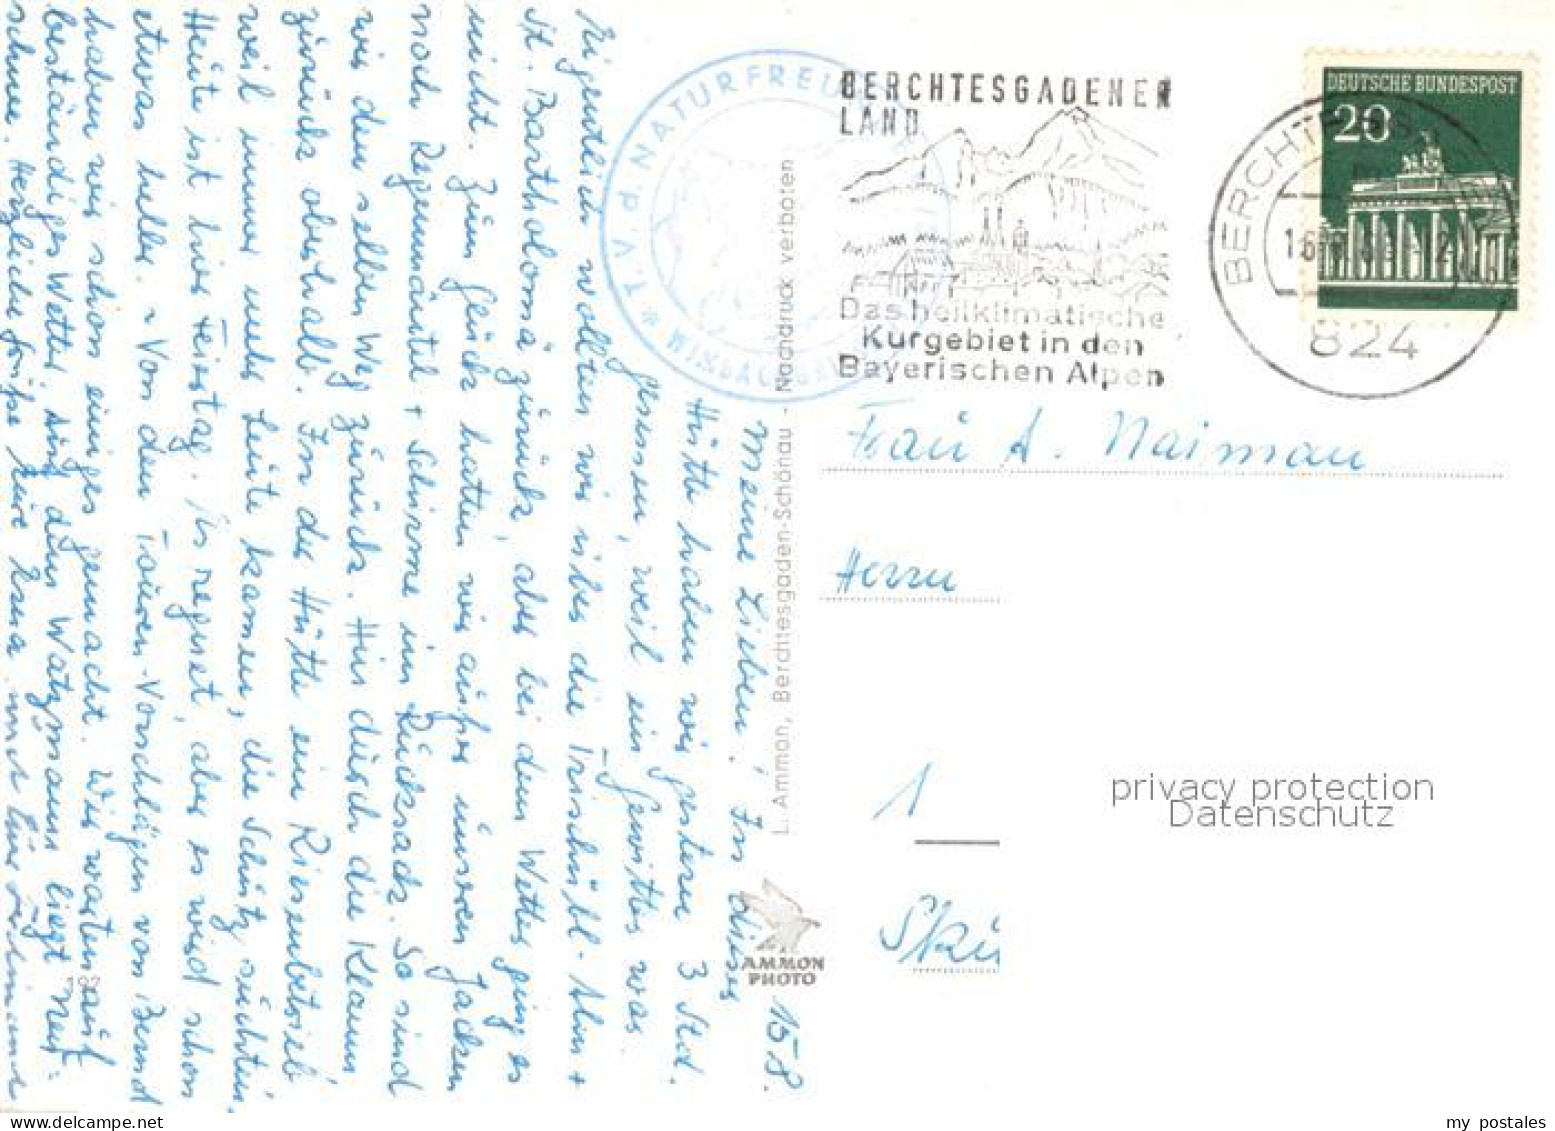 15.8.
Meine Lieben! In dieser
Hütte haben wir gestern 3 Std.
gesessen, weil ein Gewitter war.
Eigentlich wollten wir über die Trischübl-Alm +
St. Bartholomä zurück, aber bei dem Wetter ging es
nicht. Zum Glück hatten wir außer unseren Jacken
noch Regenmäntel + Schirme im Rucksack. So sind
wir den selben Weg zurück. Hin durch die Klamm,
zurück oberhalb. In der Hütte ein Riesenbetrieb
weil immer mehr Leute kamen, die Schutz suchten.
Heute ist hier Feiertag. Es regnet, aber es wird schon
etwas heller. - Von den Touren-Vorschlägen von Bernd
haben wir schon einiges gemacht. Wir warten auf
beständiges Wetter. Auf dem Watzmann liegt Neu-
schnee. Herzliche Grüße Eure Erna und
T.V.d.NATURFREUNDE
BERCHTESGADENER
LAND
Das heilklimatische
Kurgebiet in den
Bayerischen Alpen
DEUTSCHE BUNDESPOST
20
BERCHTESGADEN
824
L. Ammon, Berchtesgaden-Schönau - Nachdruck verboten
AMMON
PHOTO
Frau A. Naiman
Herrn
1
privacy protection
Datenschutz
my postales